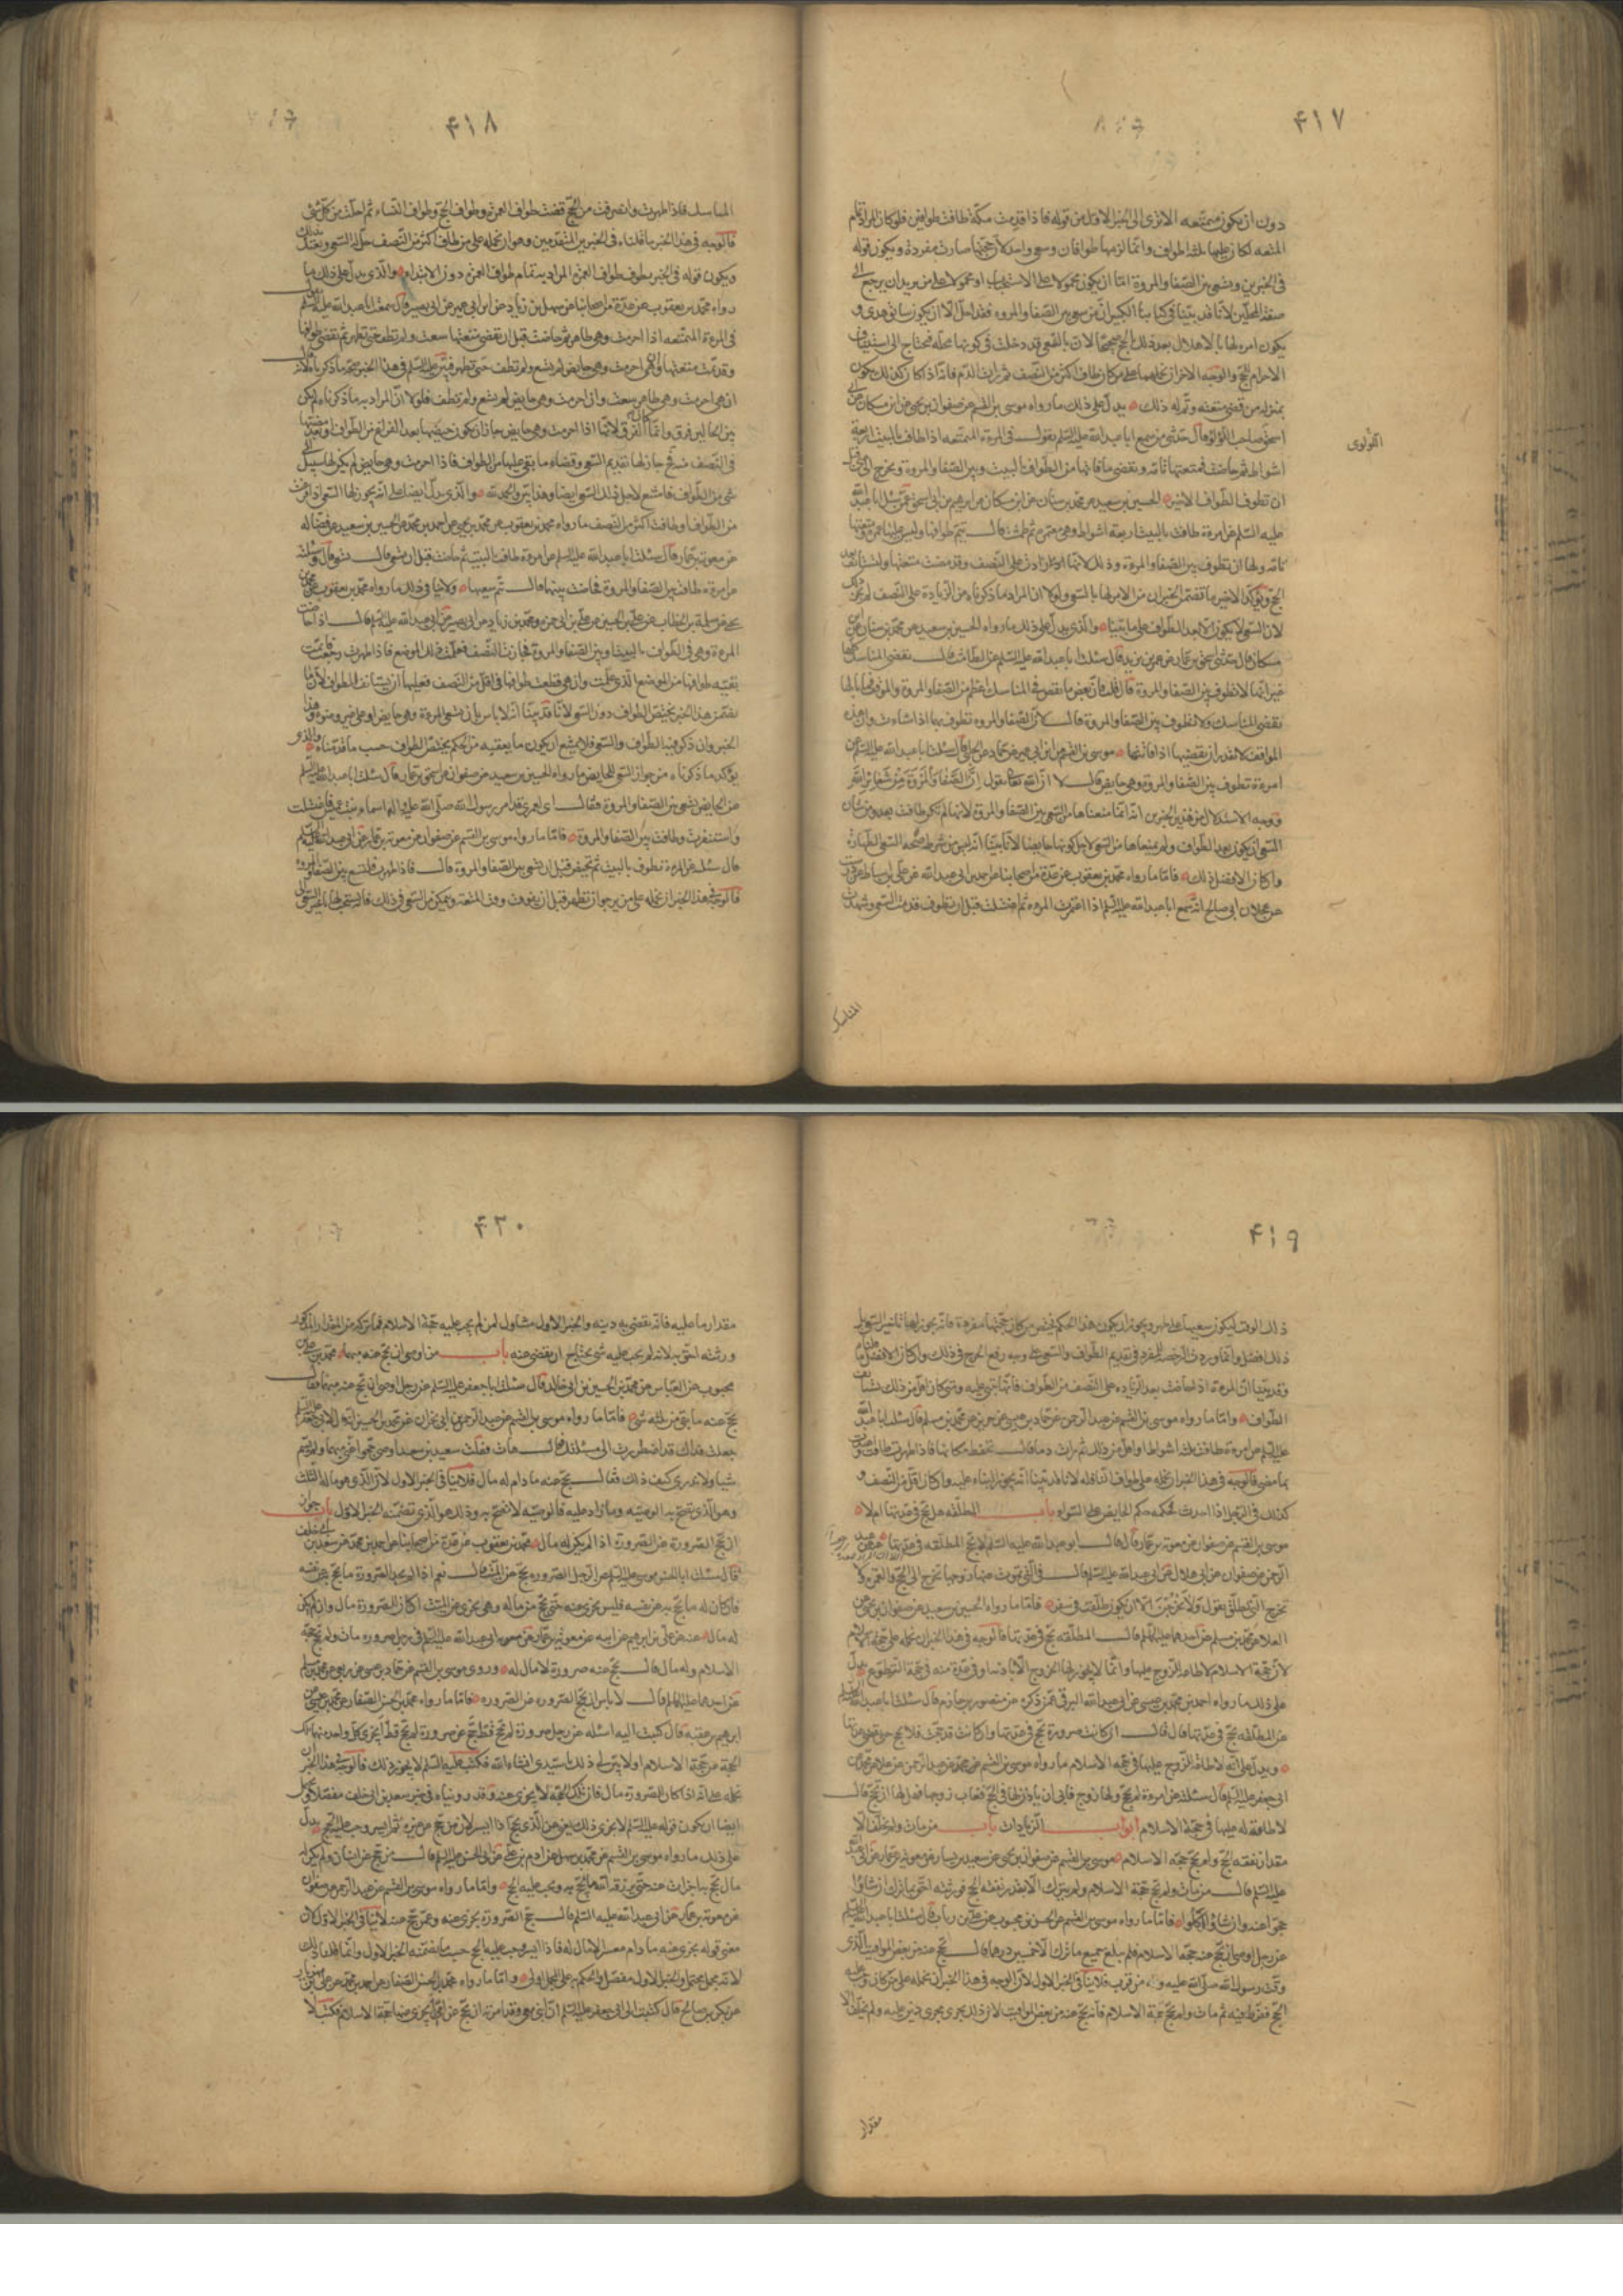 ٤١٧
دون ان يكون متمتعه الا ترى الى الخبر الاول من قوله فاذا قدمت مكة طافت طوافين فلو كان المراد تمام
المتعه لكان عليها ثلثة اطواف وانما لزمها طوافان وسعى واحد لان حجتها صارت مفردة ويكون قوله
فى الخبرين وتسعى بين الصفا والمروة اما ان يكون محمولا على الاستحباب او محمولا على من يريد ان يرجع الى
صفة المحلين لانا قد بينا فى كتابنا الكبير ان من سعى بين الصفا والمروه فقد احل الا ان يكون سائق هدى و
يكون امره لها بالاهلال بعد ذلك بالحج صحيحا لان بالسعى قد دخلت فى كونها محلة فتحتاج الى استيناف
الاحرام للحج والوجه الاخر ان نحملهما على من كان طاف اكثر من النصف ثم رات الدم فاذا كان كذلك يكون
بمنزله من قضى متعته وتم له ذلك يدل على ذلك ما رواه موسى بن القسم عن صفوان بن يحيى عن ابن مسكان عن
اسحق صاحب اللؤلؤ قال حدثنى من سمع ابا عبد الله عليه السلم يقول فى المرءة المتمتعه اذا طافت بالبيت اربعة
اشواط ثم حاضت فمتعتها تامه وتقضى ما فاتها من الطواف بالبيت وبين الصفا والمروة وتخرج الى منى قبل
ان تطوف الطواف الاخير الحسين بن سعيد عن محمد بن سنان عن ابن مسكان عن ابرهيم بن ابى اسحق عمن سئل ابا عبد الله
عليه السلم عن امرءة طافت بالبيت اربعة اشواط وهى معتمرة ثم طمثت قال يتم طوافها وليس عليها عمرة ومتعتها
تامه ولها ان تطوف بين الصفا والمروة وذلك لانها زادت على النصف وقد مضت متعتها ولتستانف بعد
الحج
لان السعى لا يكون الا بعد الطواف على ما بينا والذى يدل على ذلك ما رواه الحسين بن سعيد عن محمد بن سنان عن ابن
مسكان قال حدثنى اسحق بن عمار عن عمر بن يزيد قال سئلت ابا عبد الله عليه السلم عن الطامث قال تقضى المناسك كلها
غير انها لا تطوف بين الصفا والمروة قال قلت فان بعض ما تقضى من المناسك اعظم من الصفا والمروة والموقف فما بالها
تقضى المناسك ولا تطوف بين الصفا والمروة قال لان الصفا والمروه تطوف بهما اذا شاءت وان هذه
المواقف لا تقدر ان تقضيها اذا فاتتها موسى بن القسم عن ابن ابى عمير عن حماد عن الحلبى قال سئلت ابا عبد الله عليه السلم عن
امرءة تطوف بين الصفا والمروة وهى حايض قال لا ان الله تعالى يقول ان الصفا والمروة من شعائر الله
فوجه الاستدلال من هذين الخبرين انه انما منعناها من السعى بين الصفا والمروة لانها لم تكن طافت بعد ومن شان
السعى ان يكون بعد الطواف ولم يمنعاها من السعى لاجل كونها حايضا لانا بينا انه ليس من شرط صحة السعى الطهارة
وان كان الافضل ذلك فاما ما رواه محمد بن يعقوب عن عدة من اصحابنا عن احمد بن ابى عبد الله عن على بن اسباط عن درست
عن عجلان ابى صالح انه سمع ابا عبد الله عليه السلم اذا اعتمرت المرءه ثم اعتلت قبل ان تطوف قدمت السعى وشهدت
المناسك
٤١٨
المناسك فاذا طهرت وانصرفت من الحج قضت طواف العمرة وطواف الحج وطواف النساء ثم احلت من كل شئ
فالوجه فى هذا الخبر ما قلناه فى الخبرين المتقدمين وهو ان نحمله على من طاف اكثر من النصف
ويكون قوله فى الخبر يطوف طواف العمرة المراد به تمام طواف العمرة دون الابتداء والذى يدل على ذلك ما
رواه محمد بن يعقوب عن عدة من اصحابنا عن سهل بن زياد عن ابن ابى عمير عن ابى بصير قال سمعت ابا عبد الله عليه السلم يقول
فى المرءة المتمتعه اذا احرمت وهى طاهر ثم حاضت قبل ان تقضى متعتها سعت ولم تطف حتى تطهر ثم تقضى طوافها
وقد تمت متعتها وان هى احرمت وهى حايض لم تسع ولم تطف حتى تطهر فبين عليه السلم فى هذا الخبر صحة ما ذكرناه لانه قال
ان هى احرمت وهى طاهر سعت وان احرمت وهى حايض لم تسع ولم تطف فلولا ان المراد به ما ذكرناه لم يكن
بين الحالين فرق وانما كان الفرق لانها اذا احرمت وهى حايض جاز ان يكون حيضها بعد الفراغ من الطواف او بعد مضيها
فى النصف منه فح جاز لها تقديم السعى وقضاء ما بقى عليها من الطواف فاذا احرمت وهى حايض لم يكن لها سبيل الى
شئ من الطواف فامتنع لاجل ذلك السعى ايضا وهذا بين والحمد لله والذى يدل ايضا على انه يجوز لها السعى اذا فرغت
من الطواف او طافت اكثر من النصف ما رواه محمد بن يعقوب عن محمد بن يحيى عن احمد بن محمد عن الحسين بن سعيد عن فضاله
عن معوية بن عمار قال سئلت ابا عبد الله عليه السلم عن امرءة طافت بالبيت ثم حاضت قبل ان تسعى قال تسعى قال وسئلته
عن امرءة طافت بين الصفا والمروة فحاضت بينهما قال تتم سعيها ولا ينافى ذلك ما رواه محمد بن يعقوب عن محمد بن
يحيى عن سلمة بن الخطاب عن على بن الحسن عن على بن ابى حمزه ومحمد بن زياد عن ابى بصير عن ابى عبد الله عليه السلم قال اذا حاضت
المرءة وهى فى الطواف بالبيت وبين الصفا والمروة فجاوزت النصف فعلمت ذلك الموضع فاذا طهرت رجعت فاتمت
بقيه طوافها من الموضع الذى علمت وان هى قطعت طوافها فى اقل من النصف فعليها ان تستانف الطواف لان ما
تضمن هذا الخبر يختص الطواف دون السعى لانا قد بينا انه لا باس بان تسعى المرءة وهى حايض او على غير وضوء وهذا
الخبر وان ذكر فيه الطواف والسعى فلا يمتنع ان يكون ما يعقبه من الحكم يختص الطواف حسب ما قدمناه والذى
يؤكد ما ذكرناه من جواز السعى للحايض ما رواه الحسين بن سعيد عن صفوان عن اسحق بن عمار قال سئلت ابا عبد الله عليه السلم
عن الحايض تسعى بين الصفا والمروة فقال اى لعمرى قد امر رسول الله صلى الله عليه واله اسماء بنت عميس فاغتسلت
واستثفرت وطافت بين الصفا والمروة فاما ما رواه موسى بن القسم عن صفوان عن معوية بن عمار عن ابى عبد الله عليه السلم
قال سئلته عن المرءة تطوف بالبيت ثم تحيض قبل ان تسعى بين الصفا والمروة قال فاذا طهرت فلتسع بين الصفا والمروة
فالوجه فى هذا الخبر ان نحمله على من يرجو ان تطهر قبل ان يفوت وقت المتعة ويتمكن من السعى فى ذلك
٤١٩
ذلك الوقت ليكون سعيها على طهر ويجوز ان يكون هذا الحكم يختص من كان حجتها مفردة فانه يجوز لها تاخير السعى بل
ذلك افضل وانما وردت الرخصه للمفرد فى تقديم الطواف والسعى على وجه رفع الحرج فى ذلك وان كان الافضل ما قلناه
وقد بينا ان المرءة اذا حاضت بعد الزياده على النصف من الطواف فانها تبنى عليه ومتى كان اقل من ذلك تستانف
الطواف واما ما رواه موسى بن القسم عن عبد الرحمن عن حماد بن عيسى عن حريز عن محمد بن مسلم قال سئلت ابا عبد الله
عليه السلم عن امرءة طافت ثلثه اشواط او اقل من ذلك ثم رات دما قال تحفظ مكانها فاذا طهرت طافت واعتدت
بما مضى فالوجه فى هذا الخبر ان نحمله على طواف النافله لانا قد بينا انه يجوز البناء عليه وان كان اقل من النصف و
باب المطلقه هل تحج فى عدتها ام لا
موسى بن القسم عن صفوان عن معوية بن عمار قال قال ابو عبد الله عليه السلم لا تحج المطلقه فى عدتها
الرحمن عن صفوان عن ابى هلال عن ابى عبد الله عليه السلم قال فى التى يموت عنها زوجها تخرج الى الحج والعمره ولا
تخرج التى تطلق يقول ولا يخرجن الا ان يكون طلقت فى سفر فاما ما رواه الحسين بن سعيد عن صفوان بن يحيى عن
العلا عن محمد بن مسلم عن احدهما عليهما السلم قال المطلقه تحج فى عدتها فالوجه فى هذا الخبر ان نحمله على حجة الاسلام
لان حجة الاسلام لا طاعة للزوج عليها وانما لا يجوز لها الخروج الا باذنها وفى عدة منه فى حجة التطوع يدل
على ذلك ما رواه احمد بن محمد بن عيسى عن ابى عبد الله البرقى عمن ذكره عن منصور بن حازم قال سئلت ابا عبد الله عليه السلم
عن المطلقه تحج فى عدتها قال قال ان كانت صرورة تحج فى عدتها وان كانت قد حجت فلا تحج حتى تقضى عدتها
ويدل على انه لا طاعة للزوج عليها فى حجه الاسلام ما رواه موسى بن القسم عن محمد عن عبد الرحمن عن علا عن محمد عن
ابى جعفر عليه السلم قال سئلته عن امرءة لم تحج ولها زوج فابى ان ياذن لها فى الحج فغاب زوجها فهل لها ان تحج قال
لا طاعة له عليها فى حجة الاسلام ابواب الزيادات باب من مات ولم يخلف الا
مقدار نفقه الحج ولم يحج حجه الاسلام موسى بن القسم عن صفوان بن يحيى عن سعيد بن يسار عن معوية بن عمار عن ابى عبد الله
عليه السلم قال من مات ولم يحج حجة الاسلام ولم يترك الا بقدر نفقة الحج فورثته احق بما ترك ان شاؤا
حجوا عنه وان شاؤا اكلوا فاما ما رواه موسى بن القسم عن الحسن بن محبوب عن على بن رئاب قال سئلت ابا عبد الله عليه السلم
عن رجل اوصى ان يحج عنه حجة الاسلام فلم يبلغ جميع ما ترك الا خمسين درهما قال يحج عنه من بعض المواقيت الذى
وقت رسول الله صلى الله عليه واله من قرب فلا ينافى الخبر الاول لان الوجه فى هذا الخبر ان نحمله على من كان وجب عليه
الحج ففرط فيه ثم مات ولم يحج حجة الاسلام فانه يحج عنه من بعض المواقيت لان ذلك يجرى مجرى دين عليه ولم يخلف الا
مقدار
٤٢٠
مقدار ما عليه فانه يقضى به دينه والخبر الاول متناول لمن لم يجب عليه حجة الاسلام
ورثته احق به لانه لم يجب عليه شئ يحتاج ان يقضى عنه باب من اوصى ان يحج عنه مبهما محمد بن على بن
محبوب عن العباس عن محمد بن الحسين بن ابى خالد قال سئلت ابا جعفر عليه السلم عن رجل اوصى ان يحج عنه مبهما فقال
يحج عنه ما بقى من ثلثه شئ فاما ما رواه موسى بن القسم عن عبد الرحمن بن ابى نجران عن محمد بن الحسين انه قال لابى جعفر عليه السلم
جعلت فداك قد اضطررت الى مسئلتك فقال هات فقلت سعيد بن سعد اوصى حجوا عنى مبهما ولم يسم
شيئا ولا ندرى كيف ذلك فقال يحج عنه ما دام له مال فلا ينافى الخبر الاول لان الذى هو ماله الثلث
وهو الذى تصح به الوصيه وما زاد عليه فالوصيه لا تصح به وذلك هو الذى تضمنه الخبر الاول باب جواز
ان يحج الصرورة عن الصرورة اذا لم يكن له مال محمد بن يعقوب عن عدة من اصحابنا عن احمد بن محمد عن سعد بن ابى خلف
قال سئلت ابا الحسن موسى عليه السلم عن الرجل الصرورة يحج عن الميت قال نعم اذا لم يجد الصرورة ما يحج به عن نفسه
فان كان له ما يحج به عن نفسه فليس يجزى عنه حتى يحج من ماله وهى تجزى عن الميت ان كان للصرورة مال وان لم يكن
له مال عنه عن على بن ابرهيم عن ابيه عن معوية بن عمار عن ابى عبد الله عليه السلم فى رجل صروره مات ولم يحج حجة
الاسلام وله مال قال يحج عنه صرورة لا مال له وروى موسى بن القسم عن حماد بن عيسى عن ربعى عن محمد بن مسلم
عن احدهما عليهما السلم قال لا باس ان يحج الصروره عن الصروره فاما ما رواه محمد بن الحسن الصفار عن محمد بن عيسى عن
ابرهيم بن عقبه قال كتبت اليه اسئله عن رجل صرورة لم يحج قط حج عن صرورة لم يحج قط ايجزى كل واحد منهما تلك
الحجة عن حجة الاسلام او لا بين لى ذلك يا سيدى انشاء الله فكتب عليه السلم لا يجوز ذلك فالوجه فى هذا الخبر ان
نحمله على انه اذا كان للصرورة مال فان تلك الحجة لا تجزى عنه وقد روينا فى خبر سعد بن ابى خلف مفصلا ويحتمل
ايضا ان يكون قوله عليه السلم لا يجزى ذلك يعنى عن الذى يحج اذا ايسر لان من حج عن غيره ثم ايسر وجب عليه الحج يدل
على ذلك ما رواه موسى بن القسم عن محمد بن سهل عن ادم بن على عن ابى الحسن عليه السلم قال من حج عن انسان ولم يكن له
مال يحج به اجزات عنه حتى يرزقه الله ما يحج به ويجب عليه الحج واما ما رواه موسى بن القسم عن عبد الرحمن عن صفوان
عن معوية بن عمار عن ابى عبد الله عليه السلم قال حج الصرورة يجزى عنه وعمن حج عنه فلا ينافى الخبر الاول لان
معنى قوله يجزى عنه ما دام معسرا لا مال له فاذا ايسر وجب عليه الحج حسب ما تضمنه الخبر الاول
لانه مجمل محتمل والخبر الاول مفصل والحكم به على المجمل اولى واما ما رواه محمد بن الحسن الصفار عن احمد بن محمد عن على بن مهزيار
عن بكر بن صالح قال كتبت الى ابى جعفر عليه السلم ان ابنى معى وقد امرته ان يحج عن امى ايجزى عنها حجة الاسلام فكتب لا